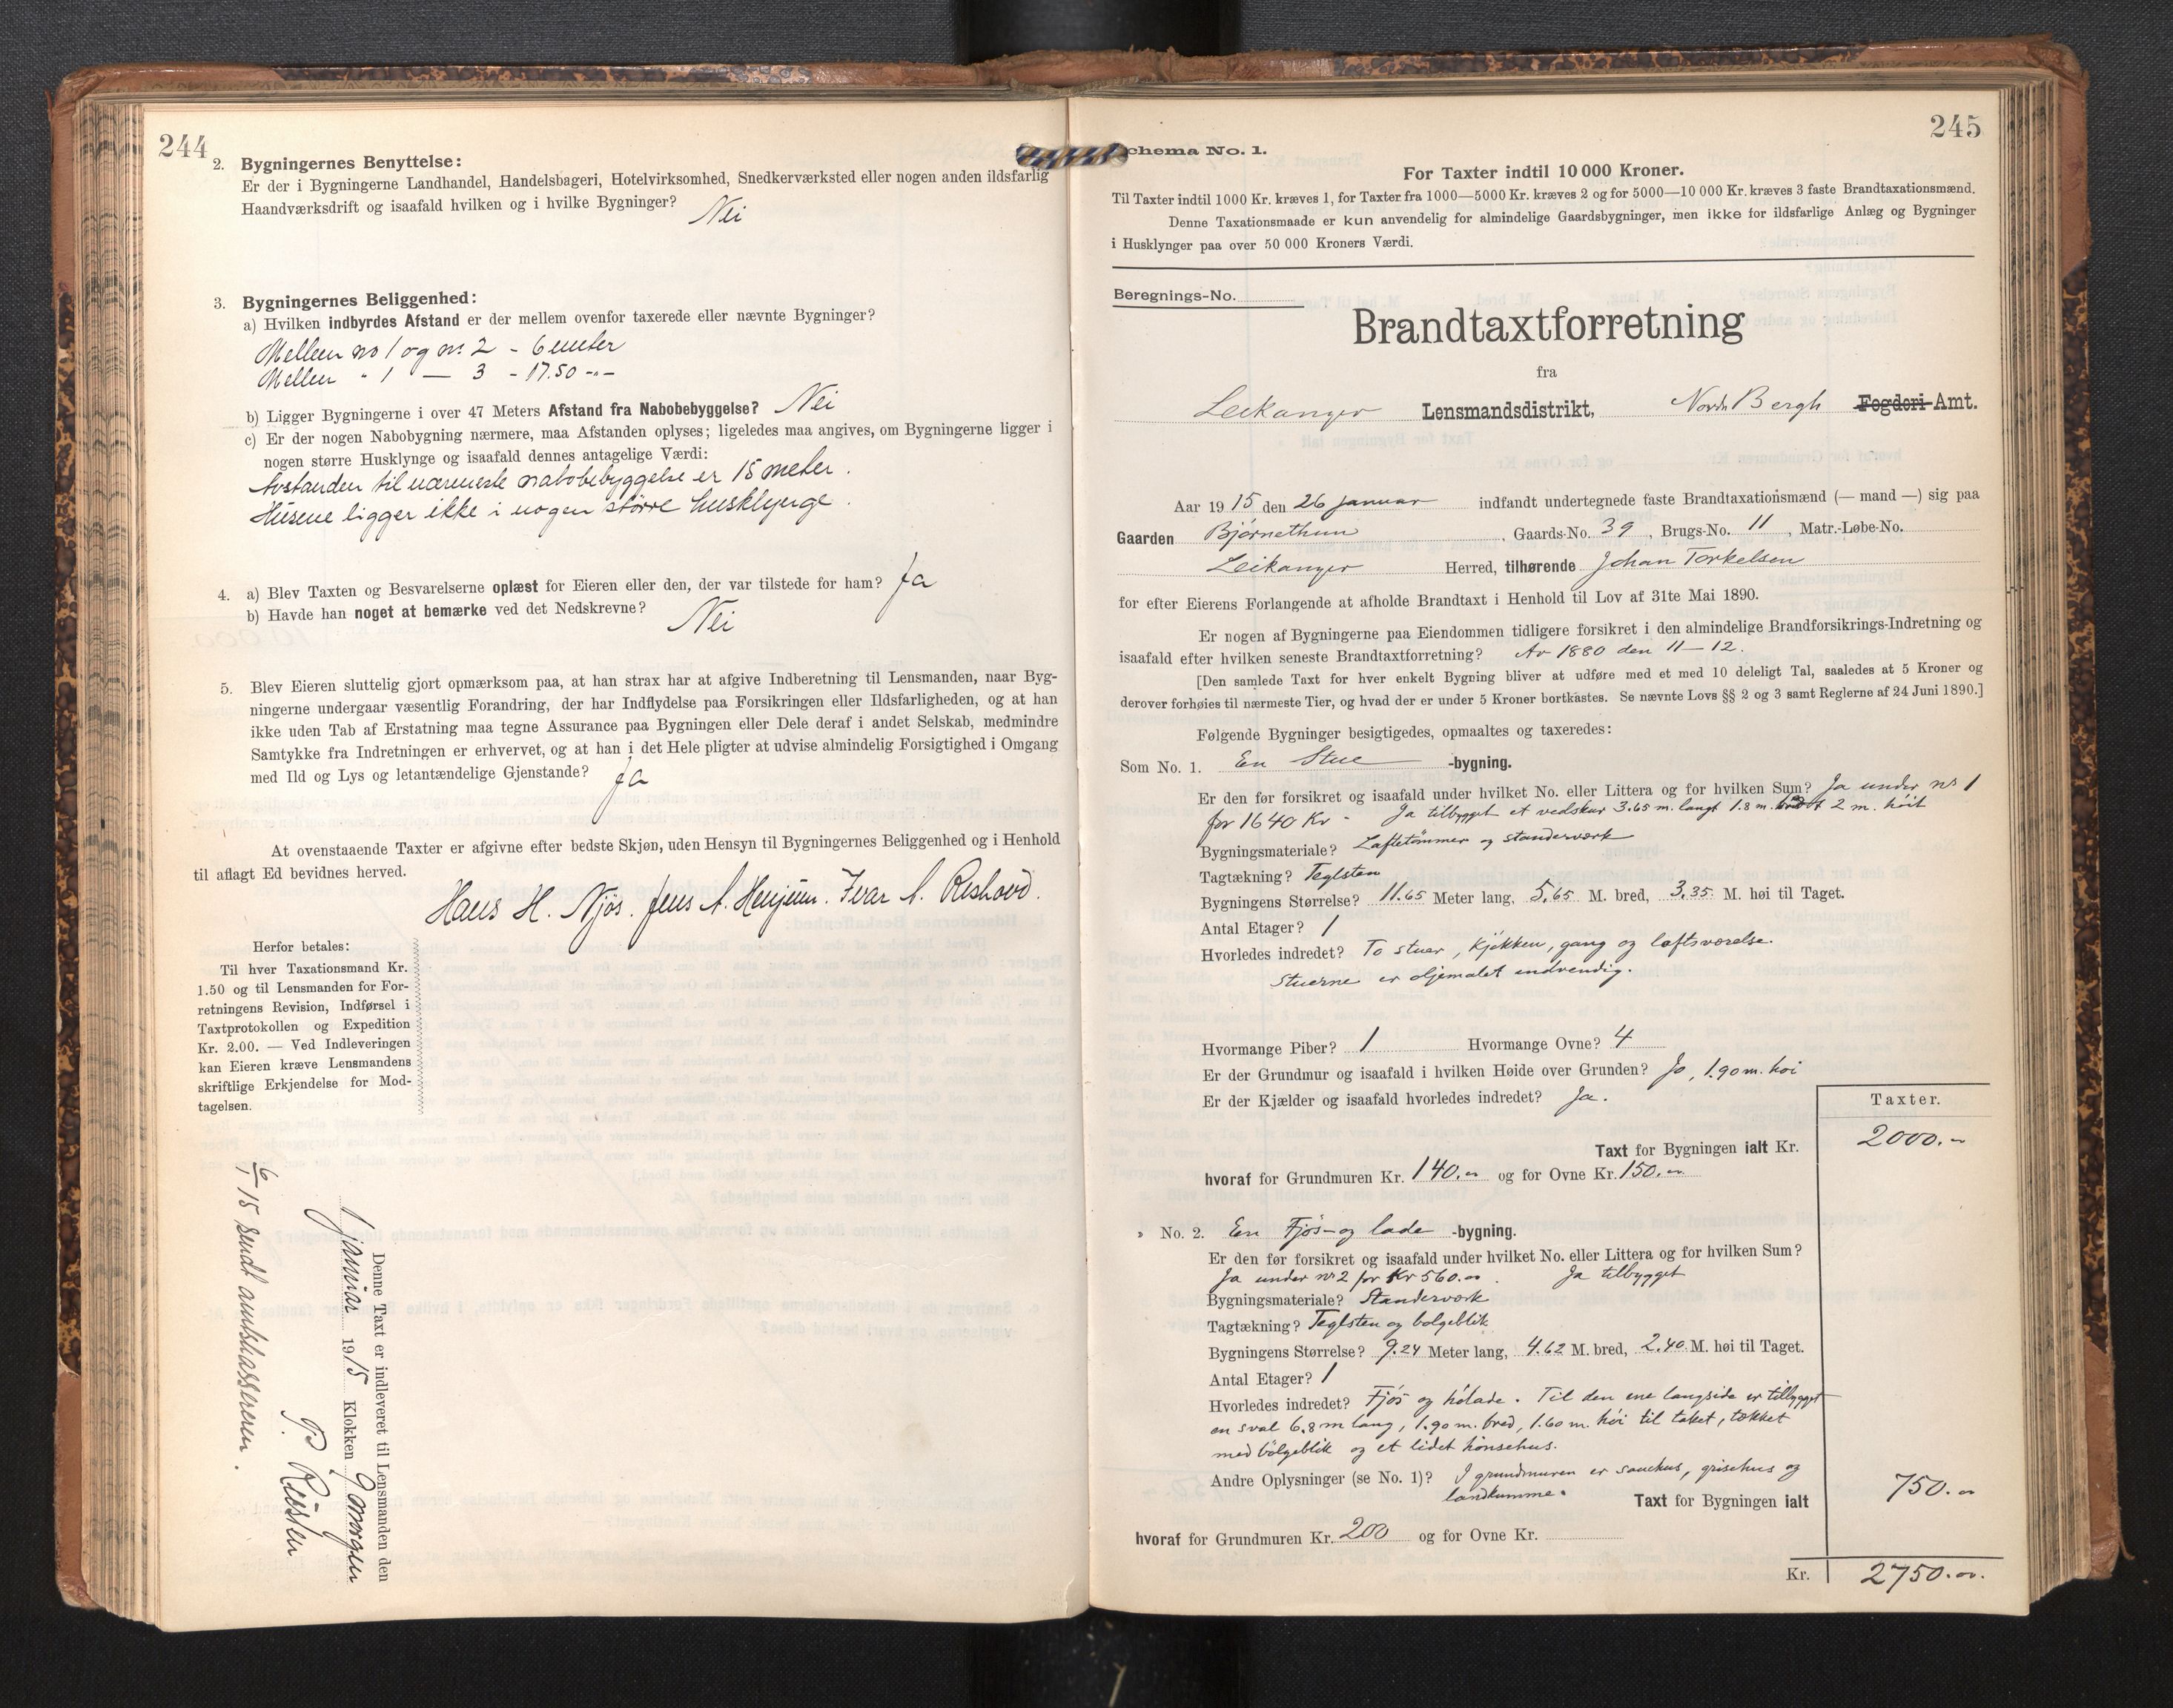 244
2. Bygningernes Benyttelse:
Er der i Bygningerne Landhandel, Handelsbageri, Hotelvirksomhed, Snedkerværksted eller nogen anden ildsfarlig
Haandværksdrift og isaafald hvilken og i hvilke Bygninger? Nei
3. Bygningernes Beliggenhed:
a) Hvilken indbyrdes Afstand er der mellem ovenfor taxerede eller nævnte Bygninger?
Mellem no 1 og no 2 - 6 meter
Mellem " 1 — 3 - 17.50 -"-
b) Ligger Bygningerne i over 47 Meters Afstand fra Nabobebyggelse? Nei
c) Er der nogen Nabobygning nærmere, maa Afstanden oplyses; ligeledes maa angives, om Bygningerne ligger i
nogen større Husklynge og isaafald dennes antagelige Værdi:
Avstanden til nærmeste nabobebyggelse er 15 meter.
Husene ligger ikke i nogen større husklynge.
4. a) Blev Taxten og Besvarelserne oplæst for Eieren eller den, der var tilstede for ham? Ja
b) Havde han noget at bemærke ved det Nedskrevne? Nei
5. Blev Eieren sluttelig gjort opmærksom paa, at han strax har at afgive Indberetning til Lensmanden, naar Byg-
ningerne undergaar væsentlig Forandring, der har Indflydelse paa Forsikringen eller Ildsfarligheden, og at han
ikke uden Tab af Erstatning maa tegne Assurance paa Bygningen eller Dele deraf i andet Selskab, medmindre
Samtykke fra Indretningen er erhvervet, og at han i det Hele pligter at udvise almindelig Forsigtighed i Omgang
med Ild og Lys og letantændelige Gjenstande? Ja
At ovenstaaende Taxter er afgivne efter bedste Skjøn, uden Hensyn til Bygningernes Beliggenhed og i Henhold
til aflagt Ed bevidnes herved.
Hans H. Njøs. Jens A. Henjum. Ivar A. Rishovd.
Herfor betales:
Til hver Taxationsmand Kr.
1.50 og til Lensmanden for For-
retningens Revision, Indførsel i
Taxtprotokollen og Expedition
Kr. 2.00. — Ved Indleveringen
kan Eieren kræve Lensmandens
skriftlige Erkjendelse for Mod-
tagelsen.
Denne Taxt er indleveret til Lensmanden den
januar 1915 Klokken 9 morgen
15 sendt amtskassereren.
245
Schema No. 1.
For Taxter indtil 10 000 Kroner.
Til Taxter indtil 1000 Kr. kræves 1, for Taxter fra 1000—5000 Kr. kræves 2 og for 5000—10 000 Kr. kræves 3 faste Brandtaxationsmænd.
Denne Taxationsmaade er kun anvendelig for almindelige Gaardsbygninger, men ikke for ildsfarlige Anlæg og Bygninger
i Husklynger paa over 50 000 Kroners Værdi.
Beregnings-No.
Brandtaxtforretning
fra
Leikanger Lensmandsdistrikt, Nordr Bergh Fogderi-Amt.
Aar 1915 den 26 januar indfandt undertegnede faste Brandtaxationsmænd (— mand —) sig paa
Gaarden Bjørnethun, Gaards-No. 39, Brugs-No. 11, Matr.-Løbe-No.
Leikanger Herred, tilhørende Johan Torkelsen
for efter Eierens Forlangende at afholde Brandtaxt i Henhold til Lov af 31te Mai 1890.
Er nogen af Bygningerne paa Eiendommen tidligere forsikret i den almindelige Brandforsikrings-Indretning og
isaafald efter hvilken seneste Brandtaxtforretning? Av 1880 den 11—12.
[Den samlede Taxt for hver enkelt Bygning bliver at udføre med et med 10 deleligt Tal, saaledes at 5 Kroner og
derover forhøies til nærmeste Tier, og hvad der er under 5 Kroner bortkastes. Se nævnte Lovs §§ 2 og 3 samt Reglerne af 24 Juni 1890.]
Følgende Bygninger besigtigedes, opmaaltes og taxeredes:
Som No. 1. En Stue -bygning.
Er den før forsikret og isaafald under hvilket No. eller Littera og for hvilken Sum? Ja under no 1
for 1640 Kr - Ja tilbygget et vedskur 3.65 m. langt 1.8 m. bredt 2 m. høit
Bygningsmateriale? Laftetømmer og standerværk
Tagtækning? Teglsten
Bygningens Størrelse? 11.65 Meter lang, 5.65 M. bred, 3.35 M. høi til Taget.
Antal Etager? 1
Hvorledes indredet? To stuer, kjøkken, gang og loftsværelse.
Stuerne er oljemalet indvendig.
Hvormange Piber? 1 Hvormange Ovne? 4
Er der Grundmur og isaafald i hvilken Høide over Grunden? Jo, 1.90 m. høi
Er der Kjælder og isaafald hvorledes indredet? Ja.
Taxter.
Taxt for Bygningen ialt Kr. 2000.-
hvoraf for Grundmuren Kr. 140.- og for Ovne Kr. 150.-
" No. 2. En Fjøs- og lade -bygning.
Er den før forsikret og isaafald under hvilket No. eller Littera og for hvilken Sum?
Ja under no 2 for Kr 560.- Ja tilbygget
Bygningsmateriale? Standerværk
Tagtækning? Teglsten og bølgeblik
Bygningens Størrelse? 9.24 Meter lang, 4.62 M. bred, 2.40 M. høi til Taget.
Antal Etager? 1
Hvorledes indredet? Fjøs og hølade. Til den ene langside er tilbygget
en sval 6,8 m lang, 1.90 m. bred, 1.60 m. høi til taket, tækket
med bølgeblik og et lidet hønsehus.
Andre Oplysninger (se No. 1)? I grundmuren er sauehus, grisehus og
landkumme.
Taxt for Bygningen ialt 750.-
hvoraf for Grundmuren Kr. 200 og for Ovne Kr.
Kr. 2750.-